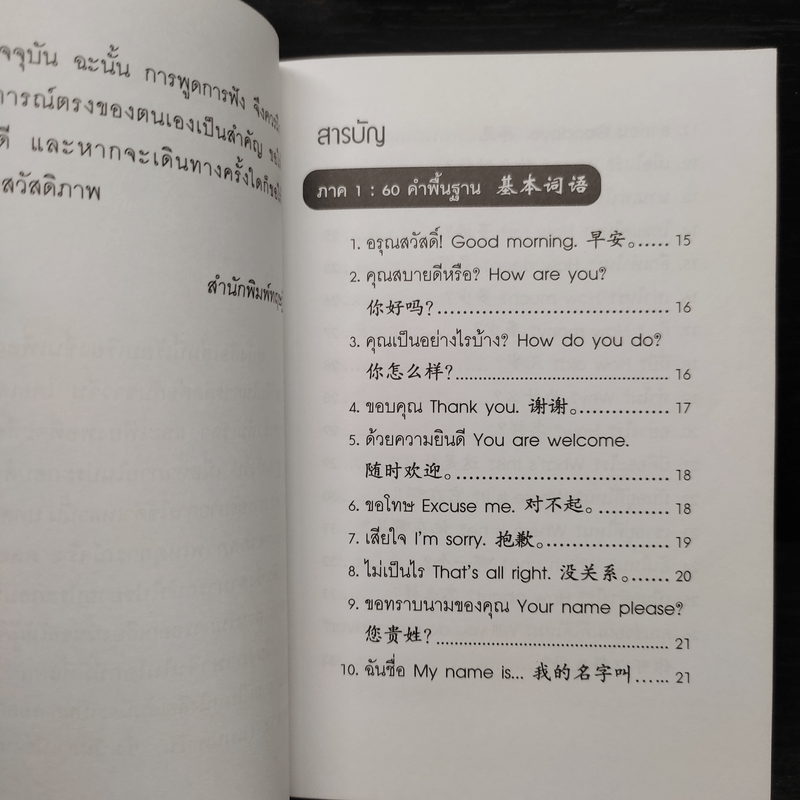 จจุบัน ฉะนั้น การพูดการฟัง
การณ์ตรงของตนเองเป็นสำคัญ
ดี และหากจะเดินทางครั้งใดก็
สวัสดิภาพ
สำนักพิมพ์
สารบัญ
ภาค 1 : 60 คำพื้นฐาน 基本词语
1. อรุณสวัสดิ์! Good morning. 早安。...... 15
2. คุณสบายดีหรือ? How are you?
你好吗?.................................... 16
3. คุณเป็นอย่างไรบ้าง? How do you do?
你怎么样?.................................... 16
4. ขอบคุณ Thank you. 谢谢。............... 17
5. ด้วยความยินดี You are welcome.
随时欢迎。................................ 18
6. ขอโทษ Excuse me. 对不起。............. 18
7. เสียใจ I'm sorry. 抱歉。.................. 19
8. ไม่เป็นไร That's all right. 没关系。....... 20
9. ขอทราบนามของคุณ Your name please?
您贵姓?.................................... 21
10. ฉันชื่อ My name is... 我的名字叫 ...... 21